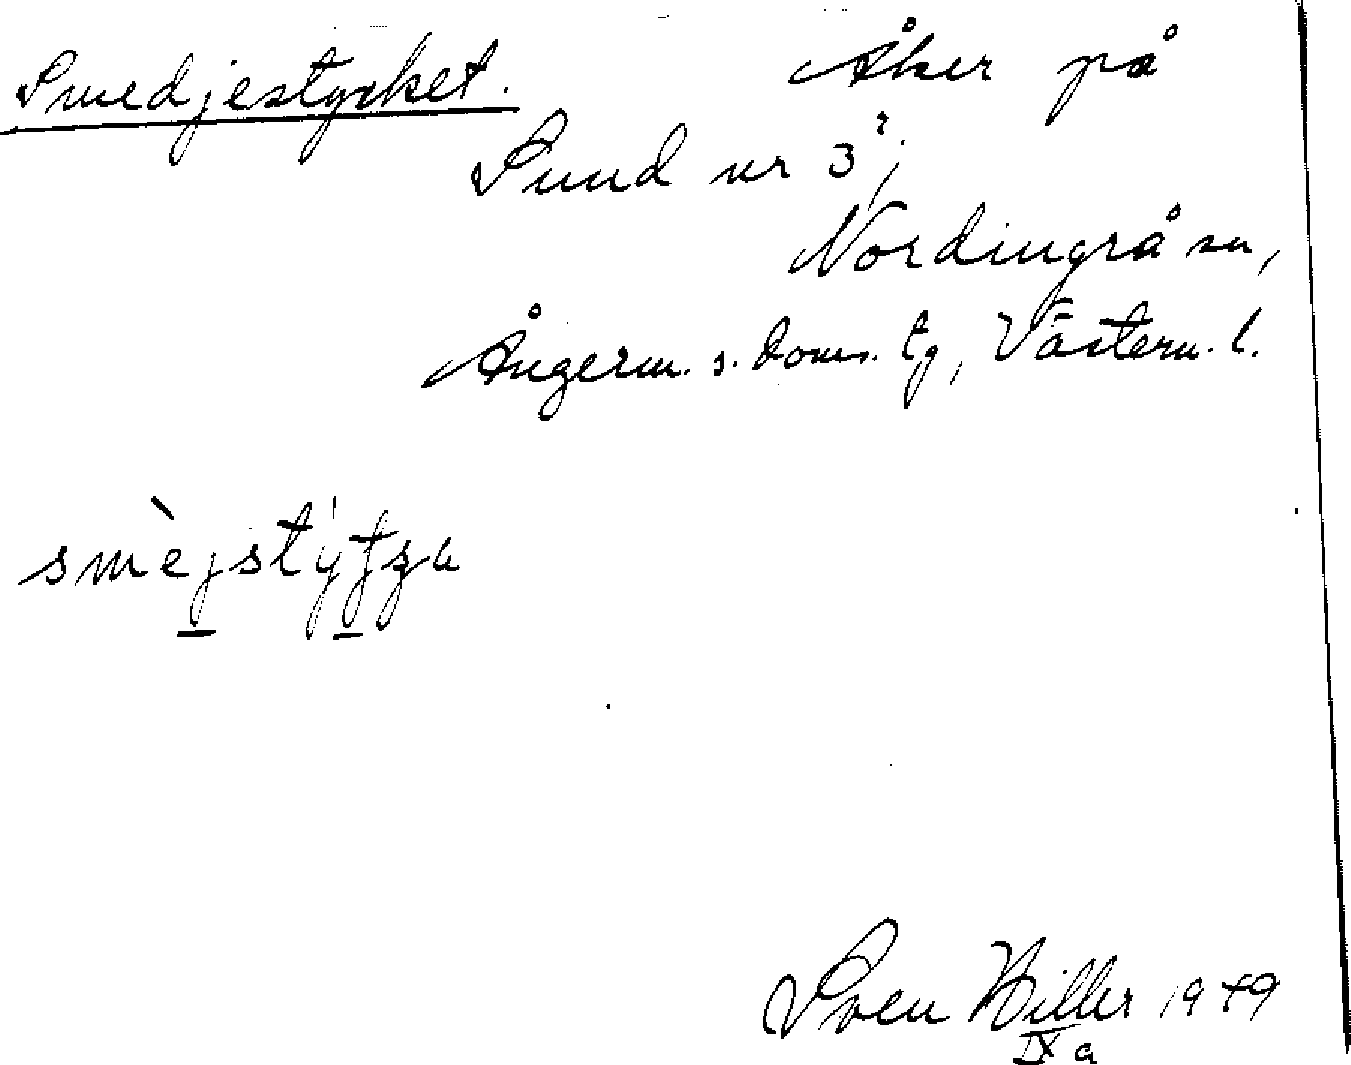 Smedjestycket. Åker på
Sund nr 3²,
Nordingrå sn,
Ångerm. s. doms. tg, Västern. l.
smèjstýtʃa
Sven Hiller 1949
IX a